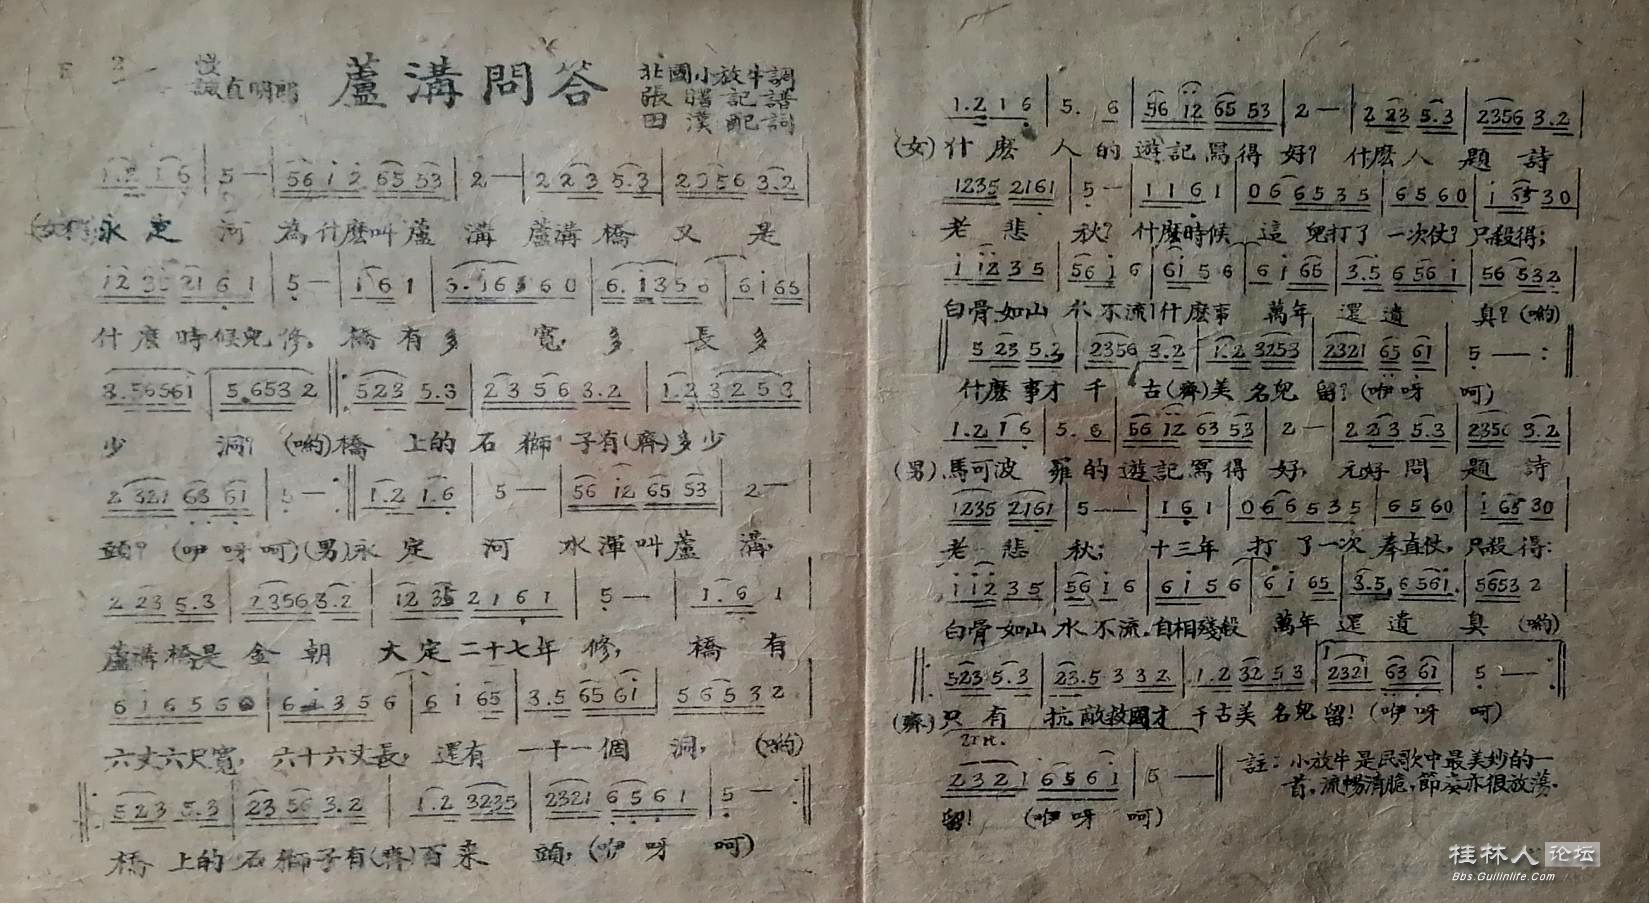 蘆溝問答
北國小放牛調
張曙記譜
田漢配詞
1.2 1 6 | 5 — | 56 1 2 65 53 | 2 — | 2 2 3 5.3 | 2 3 5 6 3.2
永定河為什麼叫蘆溝蘆溝橋又是
12 35 21 6 1 | 5 — | 1 6 1 | 3.1 6 5 6 0 | 6.1 3 5 6 | 6 1 65
什麼時候兒修,橋有多寬,多長多
3.56561 | 5.653 2 | 523 5.3 | 23 56 3.2 | 1.2 3253
少洞?(喲)橋上的石獅子有(齊)多少
2 321 63 61 | 5 — | 1.2 1.6 | 5 — | 56 12 65 53 | 2 —
頭?(咿呀呵)(男)永定河水渾叫蘆溝,
2 23 5.3 | 2356 3.2 | 12 35 2161 | 5 — | 1.6 1
蘆溝橋是金朝大定二十七年修,橋有
6 1 6 5 5 6 | 6 1 3 5 6 | 6 1 65 | 3.5 65 61 | 5 6 5 3 2
六丈六尺寬,六十六丈長,還有一十一個洞,(喲)
523 5.3 | 23 56 3.2 | 1.2 3235 | 2321 6561 | 5 —
橋上的石獅子有(齊)百來頭,(咿呀呵)
1.2 1 6 | 5. 6 | 56 12 65 53 | 2 — | 2 23 5.3 | 2356 3.2
(女)什麼人的遊記寫得好?什麼人題詩
1235 2161 | 5 — | 1 1 6 1 | 0 6 6 5 3 5 | 6 5 6 0 | 1 65 30
老悲秋?什麼時候這兒打了一次仗?只殺得;
1 12 3 5 | 56 1 6 | 61 5 6 | 6 1 65 | 3.5 6 56 1 | 56 532
白骨如山水不流!什麼事萬年還遺臭?(喲)
5 23 5.3 | 2356 3.2 | 1.2 3253 | 2321 65 61 | 5 —
什麼事才千古(齊)美名兒留?(咿呀呵)
1.2 1 6 | 5. 6 | 56 12 63 53 | 2 — | 2 23 5.3 | 2356 3.2
(男)馬可波羅的遊記寫得好,元好問題詩
1235 2161 | 5 — — | 1 6 1 | 0 6 6 5 3 5 | 6 5 60 | 1 65 30
老悲秋;十三年打了一次奉直仗,只殺得:
1 1 2 3 5 | 56 1 6 | 6 1 5 6 | 6 1 65 | 3.5 6 561 | 5653 2
白骨如山水不流.自相殘殺萬年還遺臭(喲)
523 5.3 | 23.5 3 3 2 | 1.2 32 5 3 | 2321 63 61 | 5 —
(齊)只有抗敵救國才千古美名兒留!(咿呀呵)
2321 6561 | 5 —
註:小放牛是民歌中最美妙的一
首,流暢清脆,節奏亦很放蕩.
留!(咿呀呵)
桂林人论坛
Bbs.Guilinlife.Com